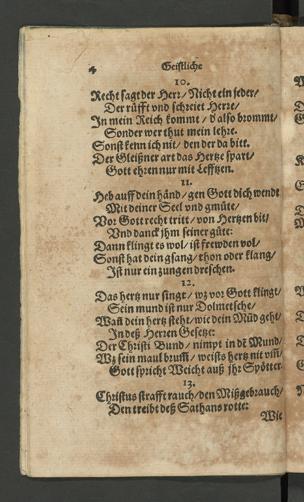 4 Geistliche
10.
Recht sagt der Herr/ Nicht ein jeder/
Der rüfft vnd schreiet Herre/
In mein Reich kommt/ d'also brommt/
Sonder wer thut mein lehre.
Sonst kenn ich nit/ den der da bitt.
Der Gleißner art das Hertze spart/
Gott ehren nur mit Lefftzen.
11.
Heb auff dein händ/ gen Gott dich wendt
Mit deiner Seel vnd gmüte/
Vor Gott recht tritt/ von Hertzen bit/
Vnd danck jhm seiner güte:
Dann klingt es wol/ ist frewden vol/
Sonst hat dein gsang/ thon oder klang/
Ist nur ein zungen dreschen.
12.
Das hertz nur singt/ wz vor Gott klingt/
Sein mund ist nur Dolmetsche/
Wañ dein hertz steht/ wie dein Mūd geht/
In deß Herren Gesetze:
Der Christi Bund/ nimpt in dē Mund/
Wz sein maul / weists hertz nit /
Gott spricht Weicht auß jhr Spötter.
13.
Christus strafft rauch/ den Mißgebrauch/
Den treibt deß Sathans rotte:
Wie